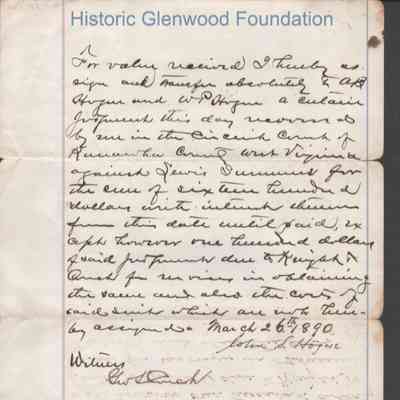 Historic Glenwood Foundation
For value received I hereby as
sign and transfer absolutely to A.B.
Hogue and W P Hogue a certain
Judgment this day recovered
by me in the Circuit Court of
Kanawha County West Virginia
against Lewis Summers for
the sum of sixteen hundred
dollars with interest thereon
from this date until paid, ex
cept however one hundred dollars
of said Judgment due to Knight &
Couch for services in obtaining
the same and also the costs of
said suit which are not here
by assigned March 26th 1890
John L Hogue
Witness
Geo S Couch